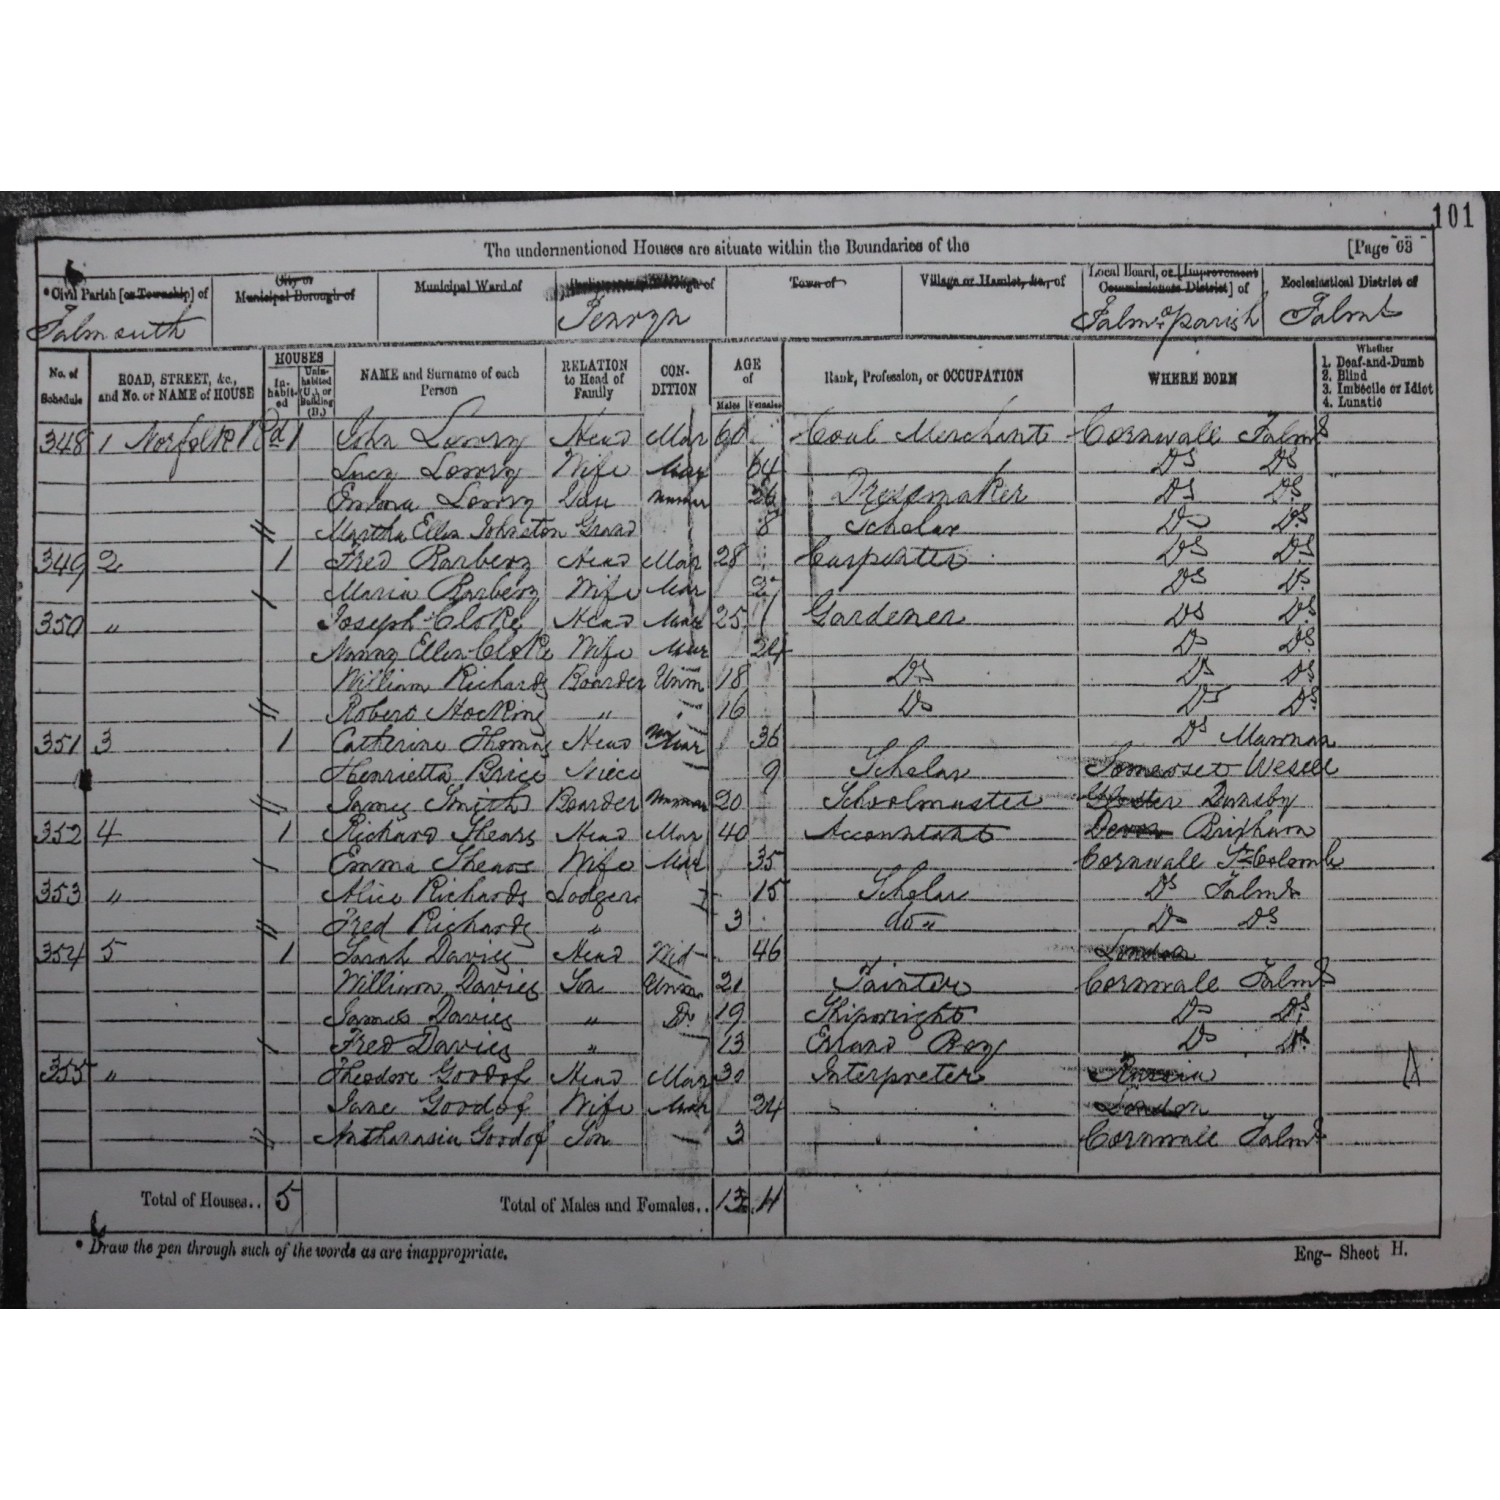 101
The undermentioned Houses are situate within the Boundaries of the [Page 63
*Civil Parish [or Township] of City or Municipal Borough of Municipal Ward of of Town of Village or Hamlet, &c., of Local Board, or [Improvement Commissioners District] of Ecclesiastical District of
Falmouth Penryn Falm. parish Falmt
No. of Schedule ROAD, STREET, &c., and No. or NAME of HOUSE HOUSES In-habit-ed Unin-habited (U.), or Building (B.) NAME and Surname of each Person RELATION to Head of Family CON-DITION AGE of Males Females Rank, Profession, or OCCUPATION WHERE BORN Whether 1. Deaf-and-Dumb 2. Blind 3. Imbecile or Idiot 4. Lunatic
348 1 Norfolk Rd 1 John Lowry Head Mar 60 Coal Merchant Cornwall Falmt
Lucy Lowry Wife Mar 64 Do Do
Emma Lowry Dau Unmar 26 Dressmaker Do Do
Martha Ellen Johnston Grand 8 Scholar Do Do
349 2 1 Fred Rarbery Head Mar 28 Carpenter Do Do
Maria Rarbery Wife Mar Do Do
350 " Joseph Cloke Head Mar 25 Gardener Do Do
Nanny Ellen Cloke Wife Mar 24 Do Do
William Richards Boarder Unm 18 Do Do Do
Robert Hocking " 16 Do Do Do
351 3 1 Catherine Thomas Head 36 Do Mawnan
Henrietta Brice Niece 9 Scholar Somerset
James Smith Boarder Unmar 20 Schoolmaster
352 4 1 Richard Shears Head Mar 40 Accountant Devon Brixham
Emma Shears Wife Mar 35 Cornwall St Colomb
353 " Alice Richards Lodger 15 Scholar Do Falmt
Fred Richards " 3 do " Do Do
354 5 1 Sarah Davies Head Wid 46 London
William Davies Son Unm 21 Painter Cornwall Falmt
James Davies " Do 19 Shipwright Do Do
Fred Davies " 13 Errand Boy Do Do
355 " Theodore Goodof Head Mar 30 Interpreter Russia
Jane Goodof Wife Mar 24 London
Goodof Son 3 Cornwall Falmt
Total of Houses.. 5 Total of Males and Females.. 13 11
* Draw the pen through such of the words as are inappropriate. Eng- Sheet H.